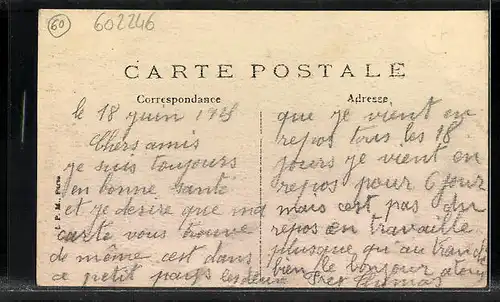 60
602246
CARTE POSTALE
Correspondance
Adresse
I. P. M., Paris
le 18 juin 19
Chers amis
je suis toujours
en bonne santé
et je desire que ma
carte vous trouve
de même cest dans
ce petit pays
que je vient en
repos tous les 18
jours je vient en
repos pour 6 jour
mais cest pas du
repos on travaille
plusque qu'au
bien le bonjour a